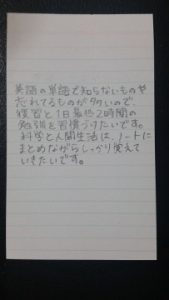 英語の単語で知らないものや
忘れてるものが多いので、
復習と1日最低2時間の
勉強を習慣づけたいです。
科学と人間生活は、ノートに
まとめながらしっかり覚えて
いきたいです。